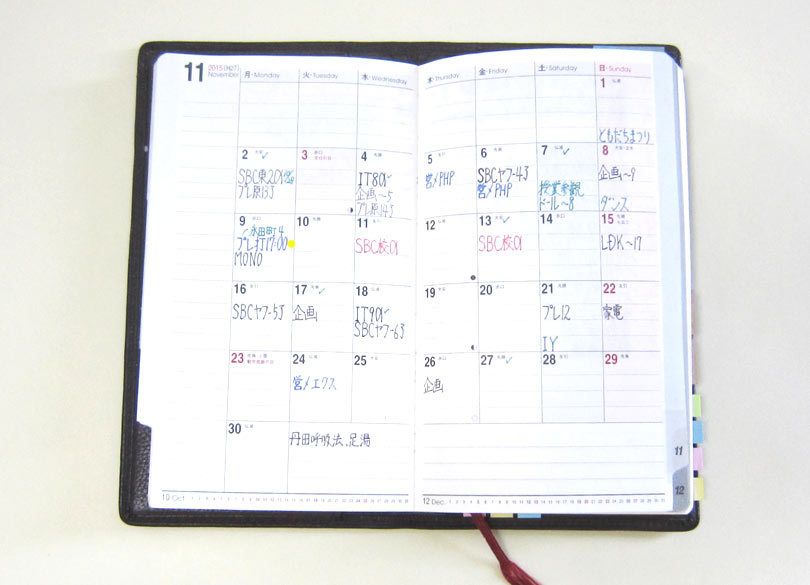 11
2015(H27)
November
月・Monday
火・Tuesday
水・Wednesday
木・Thursday
金・Friday
土・Saturday
日・Sunday
1
ともだちまつり
2
SBC東201
プレ原13J
3
4
IT801
企画〜5
プレ原14J
5
営メPHP
6
SBCヤフ-4J
営メPHP
7
授業参観
ドール〜8
8
企画〜9
ダンス
9
永田町4
プレ打17:00
MONO
10
11
SBC校01
12
13
SBC校01
14
15
LDK〜17
16
SBCヤフ-5J
17
企画
18
IT901
SBCヤフ-6J
19
20
21
プレ12
IY
22
家電
23
24
営メエクス
25
26
企画
27
28
29
30
丹田呼吸法、足湯
10 Oct.
12 Dec.
11
12